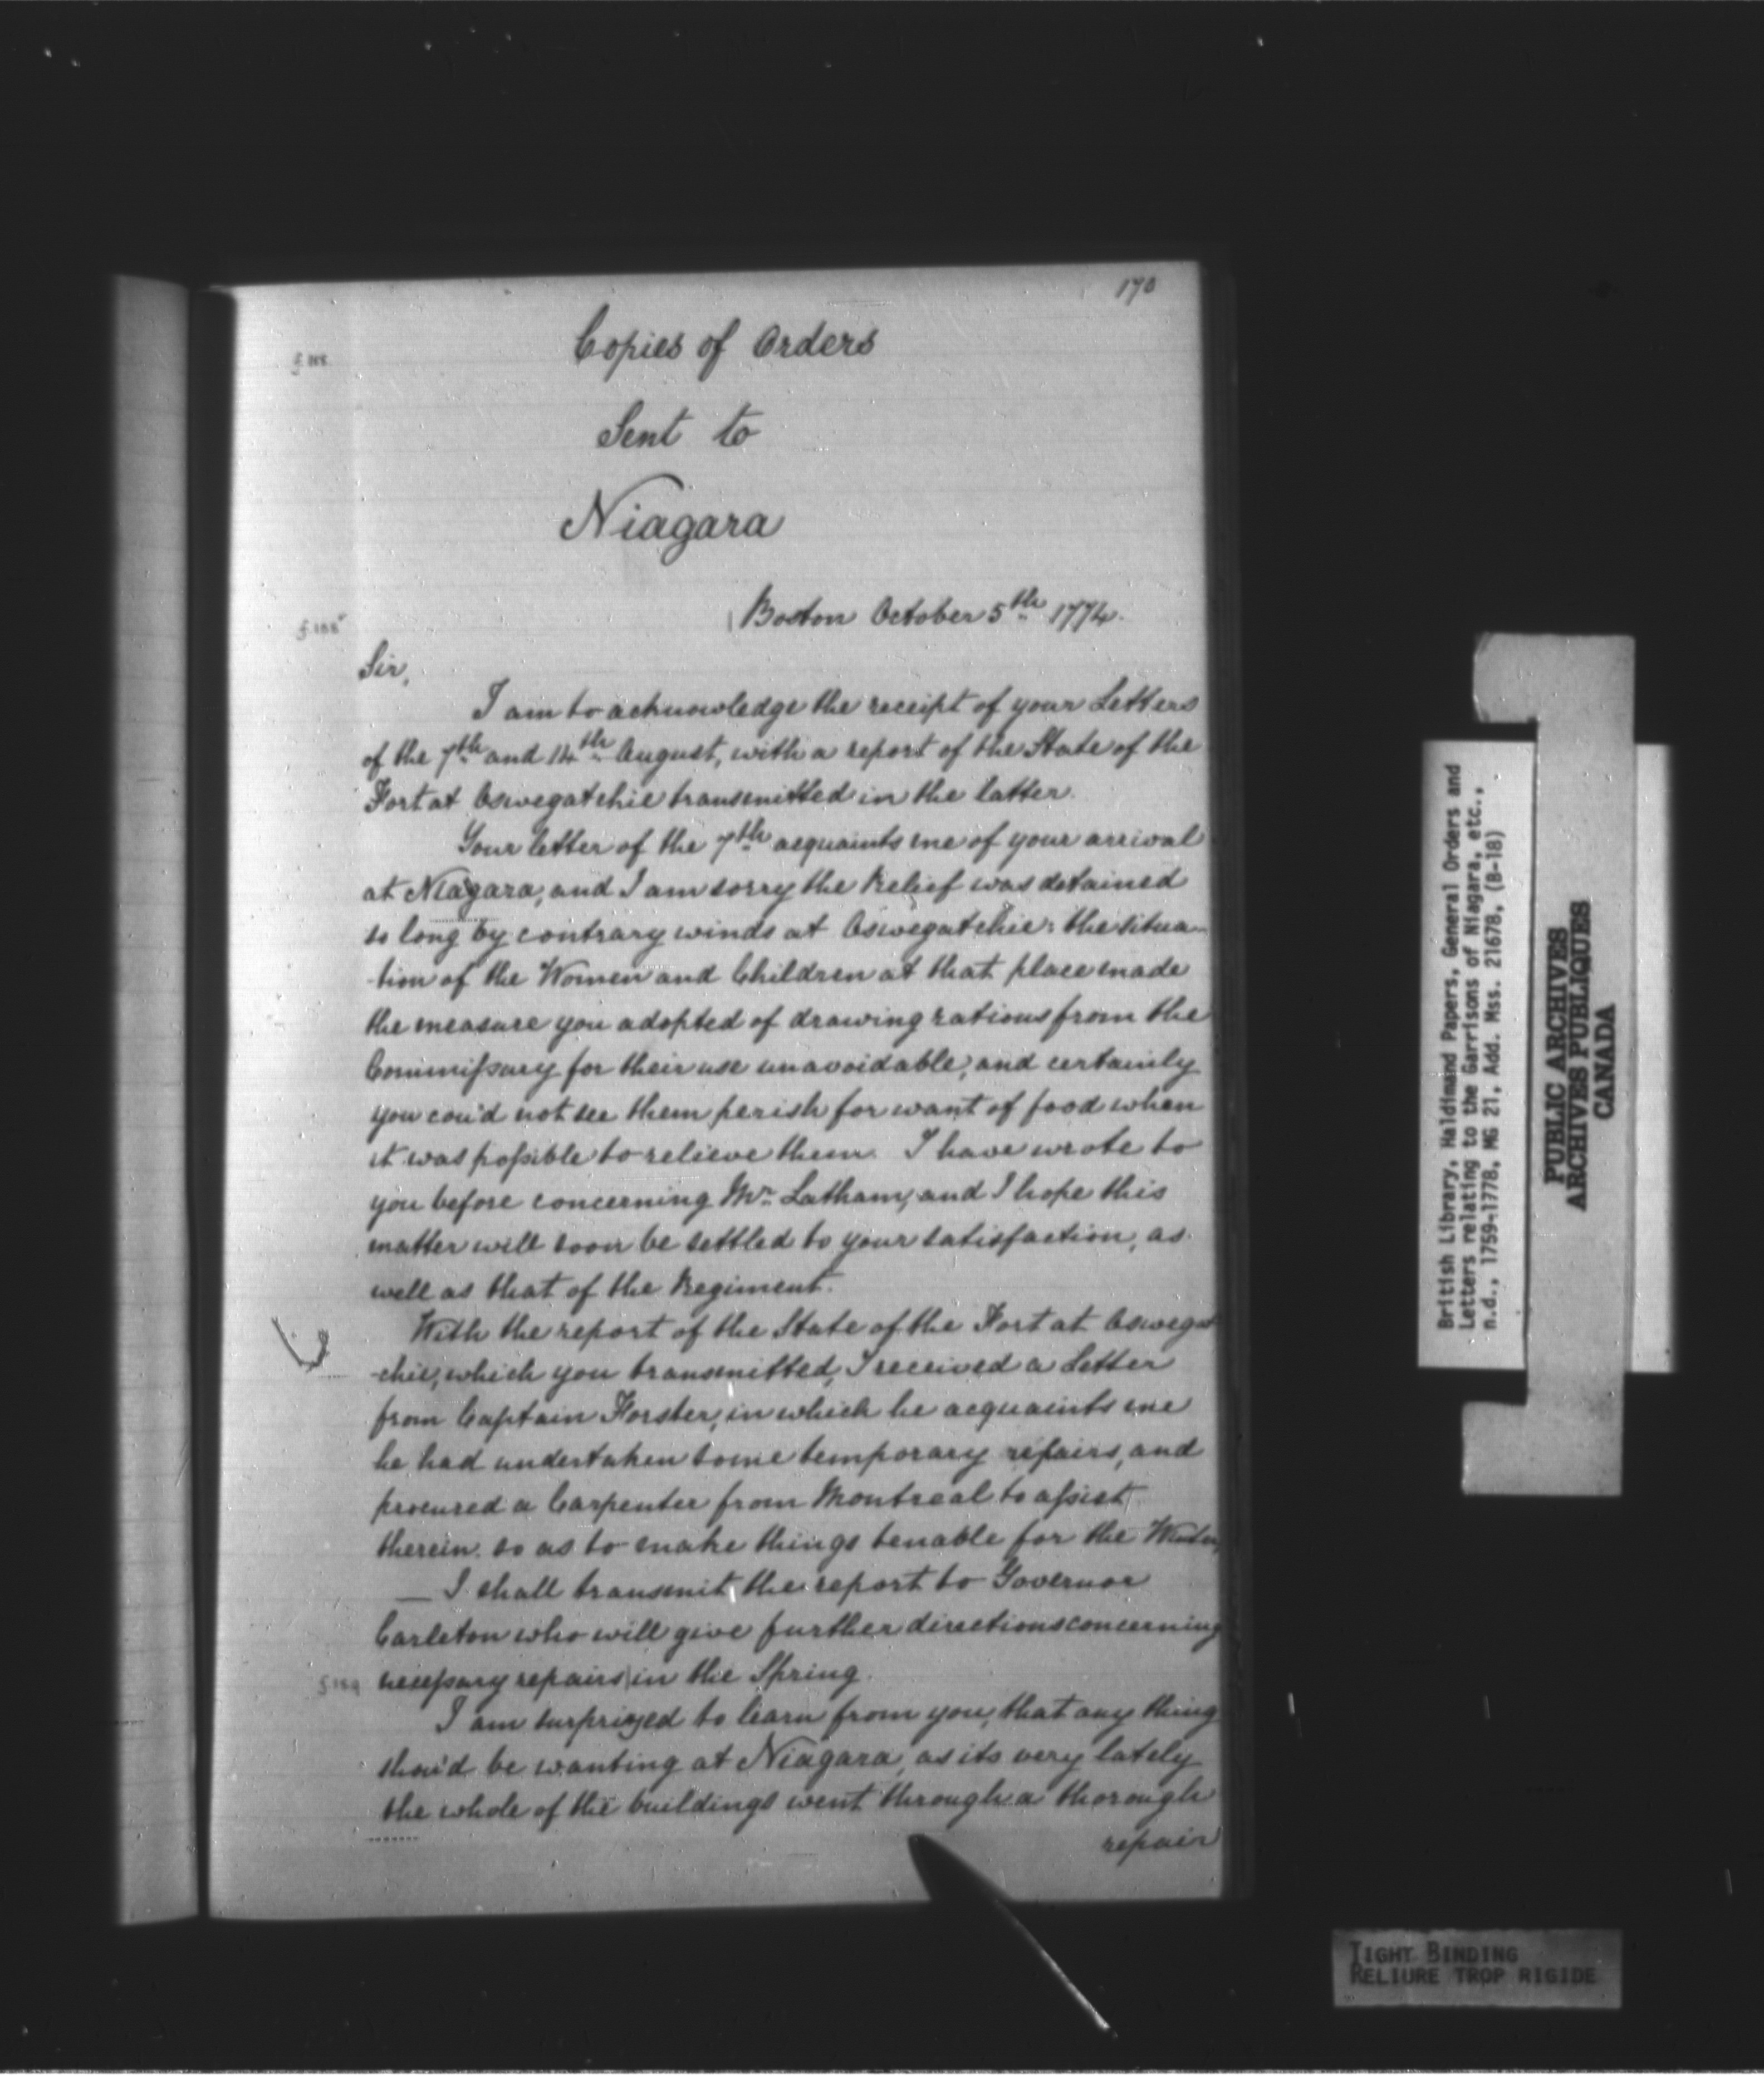 170
Copies of Orders
Sent to
Niagara
Boston October 5th 1774.
Sir,
I am to acknowledge the receipt of your Letters
of the 7th and 14th August, with a report of the State of the
Fort at Oswegatchie transmitted in the latter.
Your letter of the 7th acquaints me of your arrival
at Niagara, and I am sorry the Relief was detained
so long by contrary winds at Oswegatchie: the situa-
-tion of the Women and Children at that place made
the measure you adopted of drawing rations from the
Commissary for their use unavoidable, and certainly
you cou'd not see them perish for want of food when
it was possible to relieve them. I have wrote to
you before concerning Mr. Latham, and I hope this
matter will soon be settled to your satisfaction, as
well as that of the Regiment.
With the report of the State of the Fort at Oswegat
-chie, which you transmitted, I received a Letter
from Captain Forster, in which he acquaints me
he had undertaken some temporary repairs, and
procured a Carpenter from Montreal to assist
therein so as to make things tenable for the Winter,
— I shall transmit the report to Governor
Carleton who will give further directions concerning
necessary repairs in the Spring.
I am surprized to learn from you, that any thing
shou'd be wanting at Niagara, as its very lately
the whole of the buildings went through a thorough
repair
British Library, Haldimand Papers, General Orders and
Letters relating to the Garrisons of Niagara, etc.,
n.d., 1759-1778, MG 21, Add. Mss. 21678, (B-18)
PUBLIC ARCHIVES
ARCHIVES PUBLIQUES
CANADA
TIGHT BINDING
RELIURE TROP RIGIDE